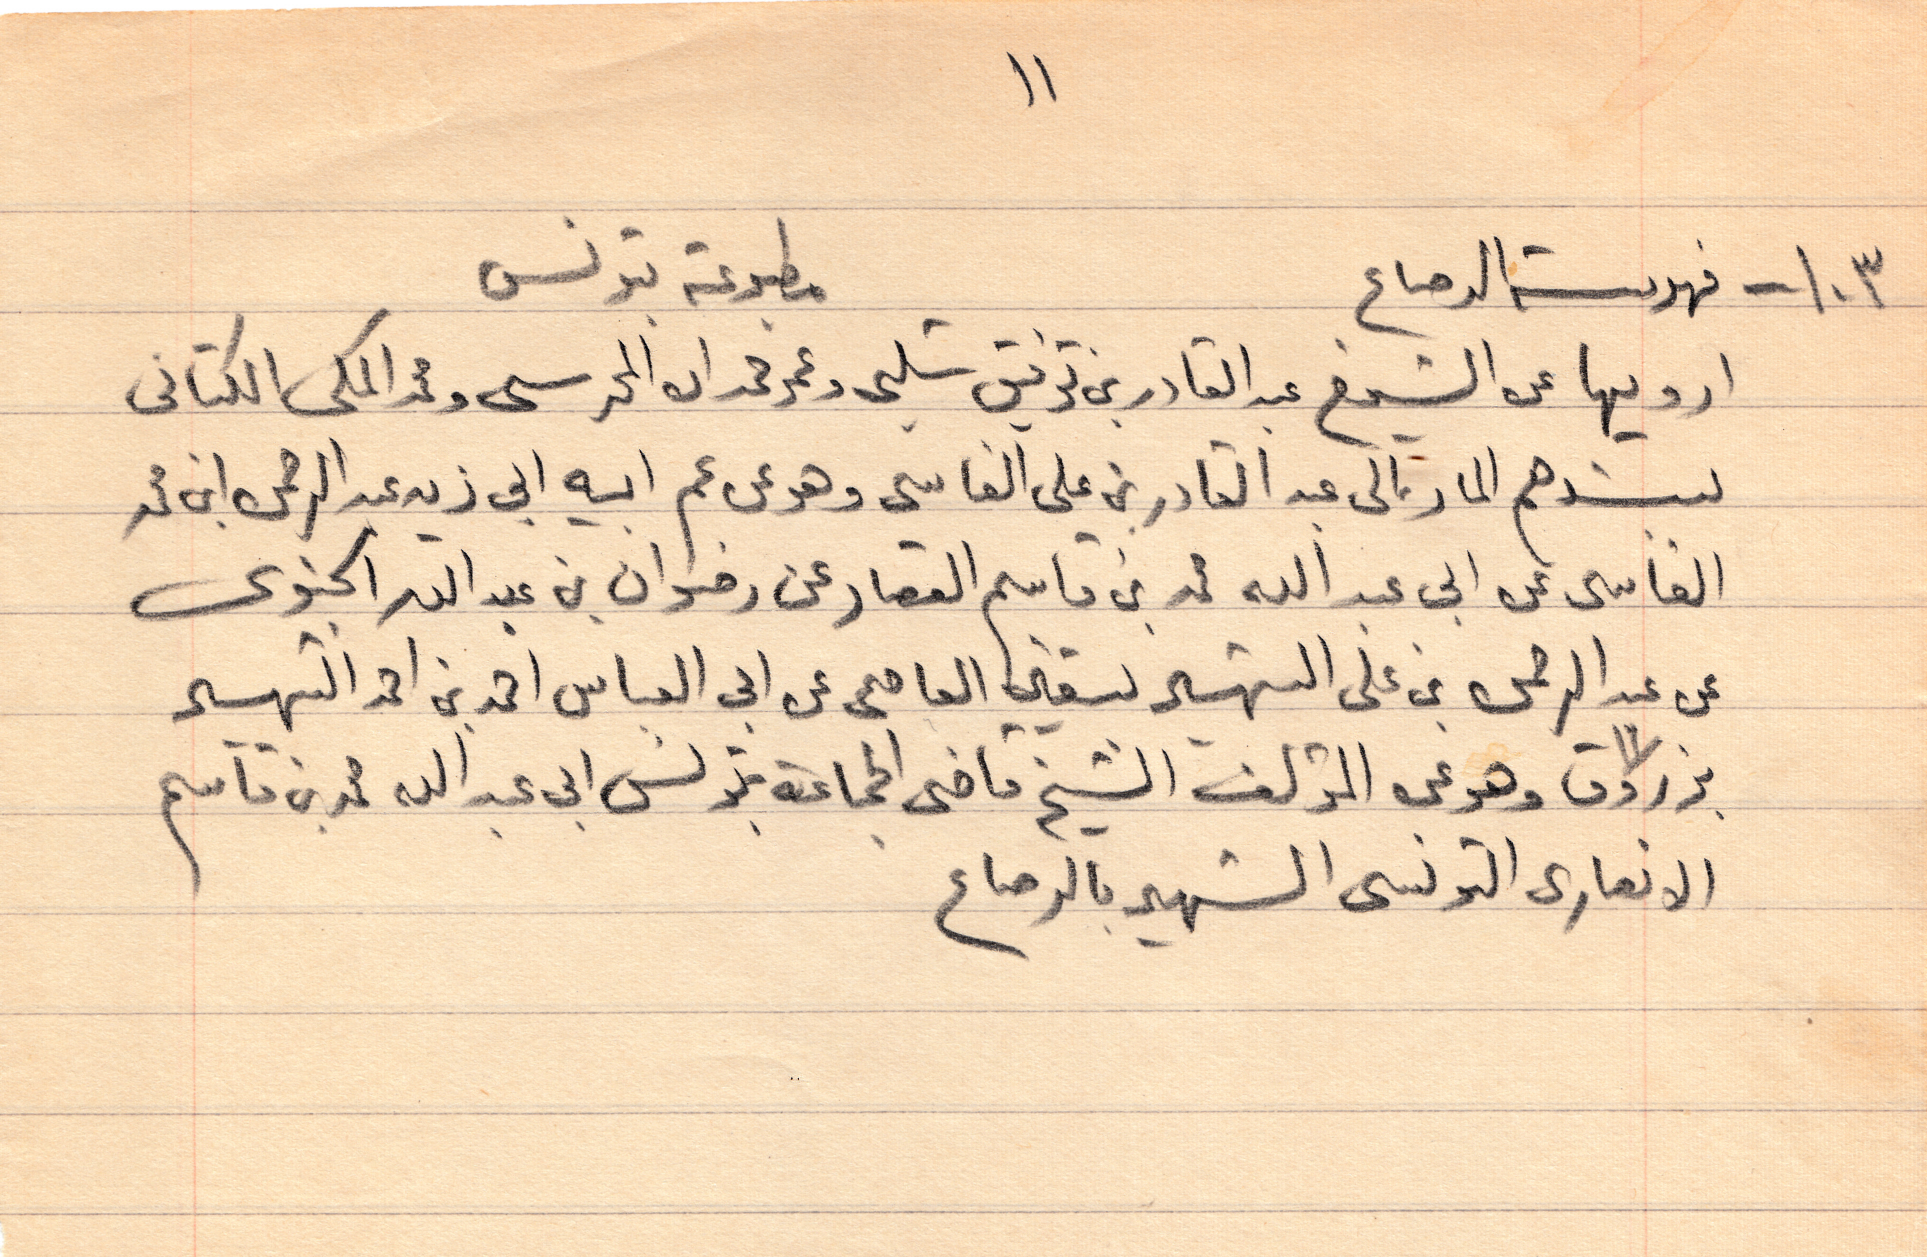 ١١
١٠٣ - فهرست الرصاع مطبوعة بتونس
ارويها عن الشيوخ عبد القادر بن توفيق شلبى وعمر حمدان المحرسى ومحمد المكى الكتانى
بسندهم المار الى عبد القادر بن على الفاسى وهو عن عم ابيه ابي زيد عبد الرحمن ابن محمد
الفاسى عن ابى عبد الله محمد بن قاسم القصار عن رضوان بن عبد الله الجنوى
عن عبد الرحمن بن على الشهير بسقين العاصمى عن ابى العباس احمد بن احمد الشهير
بزروق وهو عن المؤلف الشيخ قاضى الجماعة بتونس ابى عبد الله محمد بن قاسم
الانصارى التونسى الشهير بالرصاع